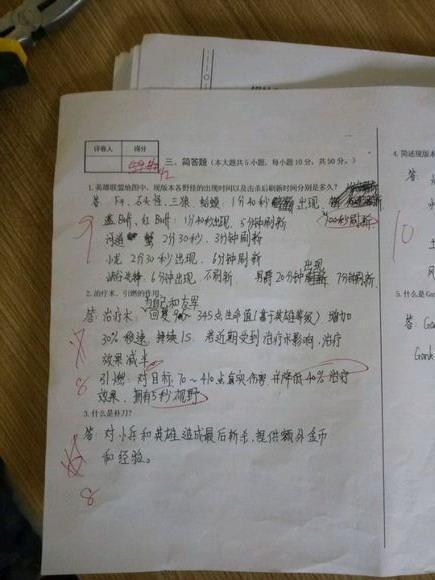 评卷人 得分
三、简答题（本大题共5小题，每小题10分，共50分。）
1.英雄联盟地图中，现版本各野怪的出现时间以及击杀后刷新时间分别是多久？
答：F4、石头怪、三狼、蛤蟆：1分40秒出现，
100秒刷新
蓝Buff、红Buff：1分40秒出现，5分钟刷新
河道蟹 2分30秒，3分钟刷新
小龙 2分30秒出现，6分钟刷新
峡谷先锋：6分钟出现，不刷新 男爵20分钟出现 7分钟刷新
9
2.治疗术、引燃的作用
与自己和友军
答：治疗术：回复90~345点生命值（基于英雄等级）增加
30%移速，持续1S.若近期受到治疗术影响，治疗
效果减半
引燃：对目标70~410点真实伤害并降低40%治疗
效果，拥有5秒视野
8
3.什么是补刀？
答：对小兵和英雄造成最后斩杀，提供额外金币
和经验。
8
4.简述现版本
答：
10
5.什么是G
答：Gank
Gank